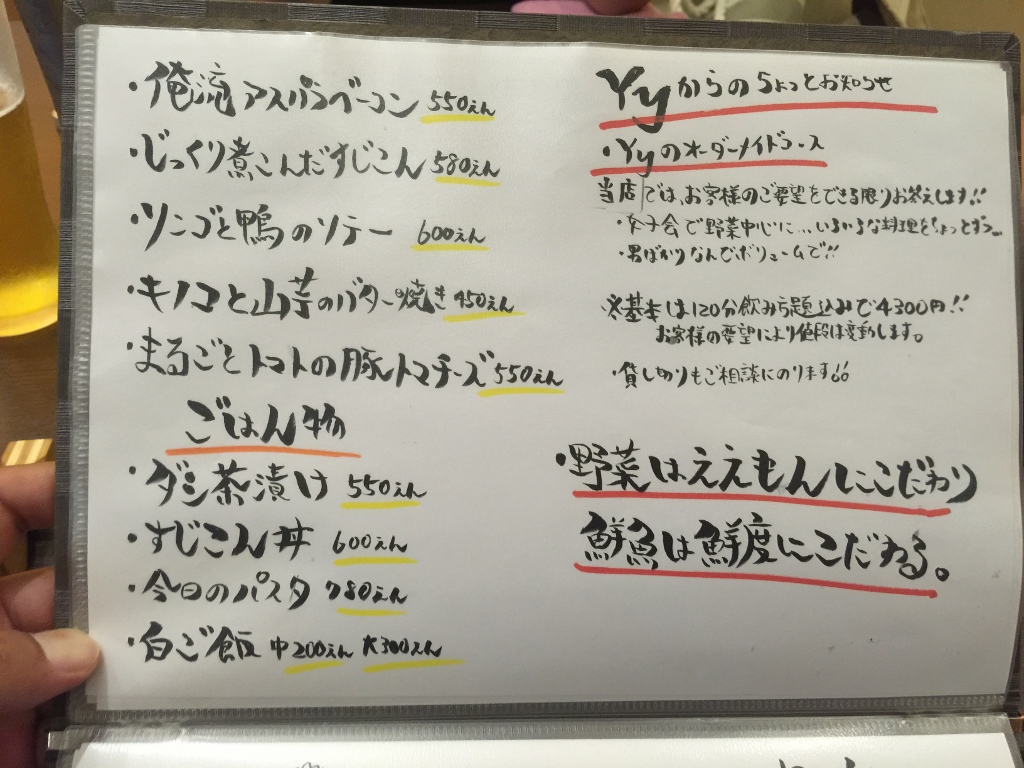 ・俺流アスパラベーコン 550えん
・じっくり煮こんだすじこん 580えん
・リンゴと鴨のソテー 600えん
・キノコと山芋のバター焼き 450えん
・まるごとトマトの豚トマチーズ 550えん
ごはん物
・ダシ茶漬け 550えん
・すじこん丼 600えん
・今日のパスタ 780えん
・白ご飯 中200えん 大300えん
Yyからのちょっとお知らせ
・Yyのオーダーメイドコース
当店では、お客様のご要望をできる限りお答えします!!
・女子会で野菜中心に…いろいろな料理をちょっとずつ…
・男ばかりなんでボリュームで!!
※基本は120分飲み放題込みで4300円!!
お客様の要望により値段は変動します。
・貸し切りもご相談にのります!!
・野菜はええもんにこだわり
鮮魚は鮮度にこだわる。